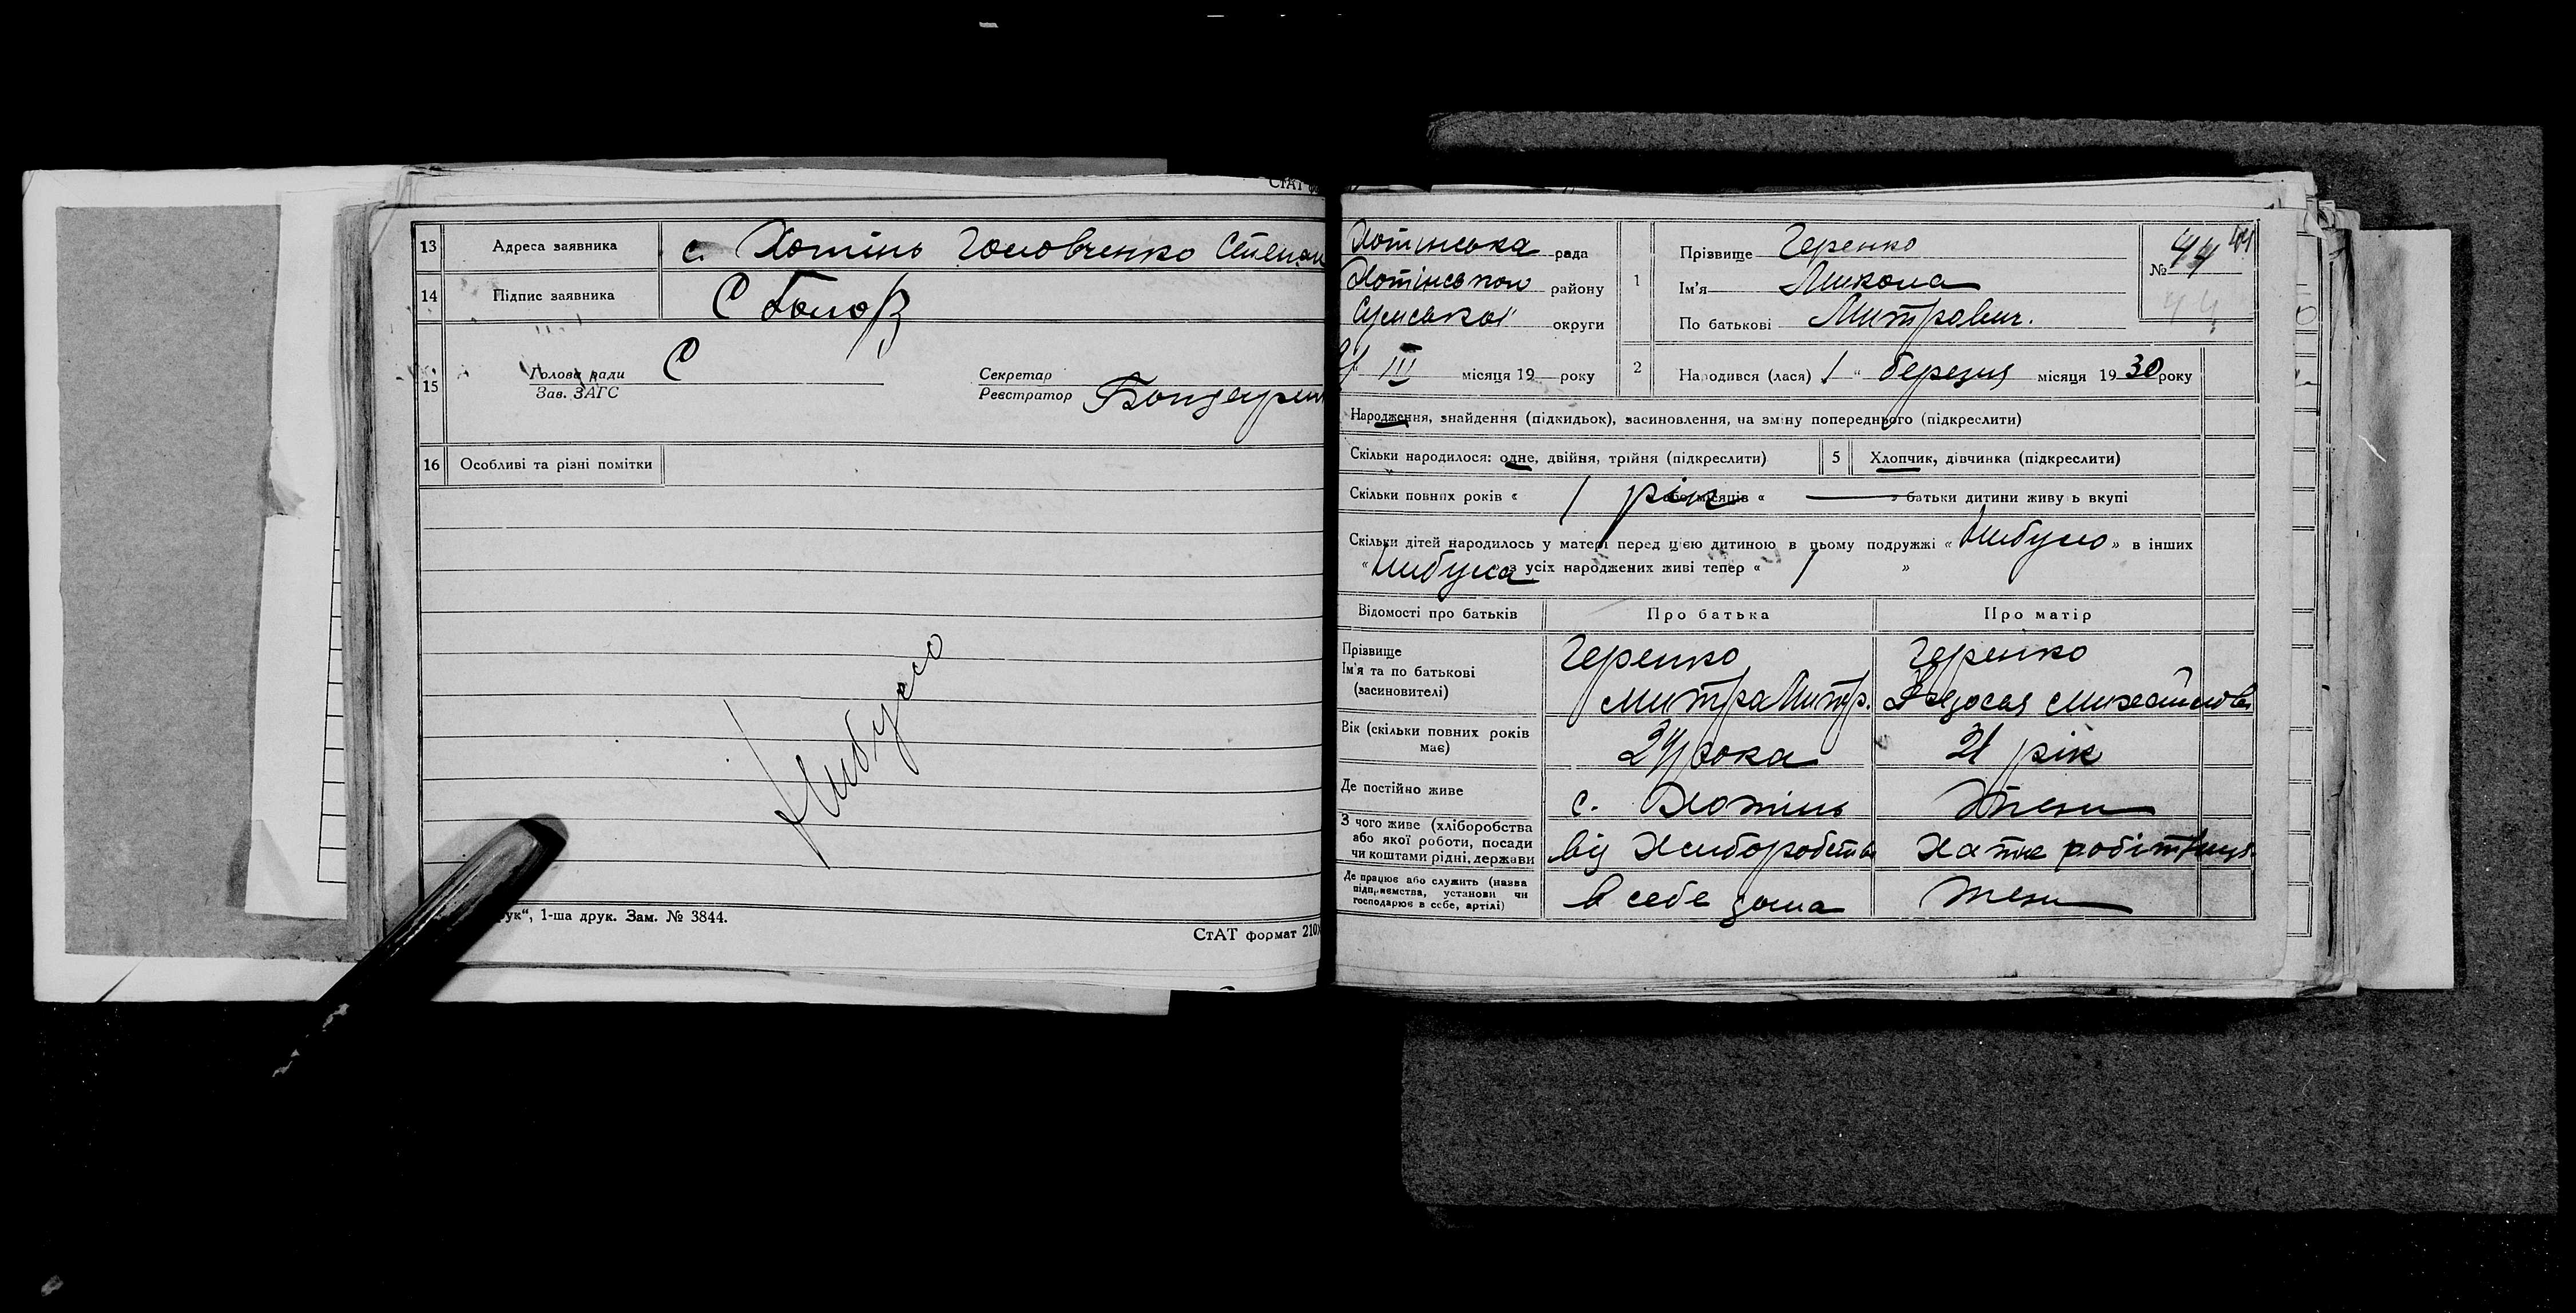 СтАТ
13 Адреса заявника с. Хотінь Головченко Степан
14 Підпис заявника С Голов
15 Голова ради С Секретар
Зав. ЗАГС Реєстратор Бондарен
16 Особливі та різні помітки
Нибуло
ук“, 1-ша друк. Зам. № 3844.
СтАТ формат 210
Хотінська рада
Хотінської району
Сумської округи
III місяця 19 року
1 Прізвище Геренко
Ім'я Микола
По батькові Митрович.
№ 44 44
44
2 Народився (лася) 1 “ березня місяця 1930 року
Народження, знайдення (підкидьок), засиновлення, на зміну попереднього (підкреслити)
Скільки народилося: одне, двійня, трійня (підкреслити) 5 Хлопчик, дівчинка (підкреслити)
Скільки повних років « 1 рік або місяців « — » батьки дитини живуть вкупі
Скільки дітей народилось у матері перед цією дитиною в цьому подружжі « Нибуло » в інших
« Нибула » з усіх народжених живі тепер « 1 »
Відомості про батьків Про батька Про матір
Прізвище Геренко Геренко
Ім'я та по батькові
(засиновителі) Митра Митр. Михайлов
Вік (скільки повних років
має) 24 рока 21 рік
Де постійно живе с. Хотінь
З чого живе (хліборобства
або якої роботи, посади
чи коштами рідні, держави від Хлиборобства Хатня робітниця
Де працює або служить (назва
підприємства, установи чи
господарює в себе, артілі) в себе дома